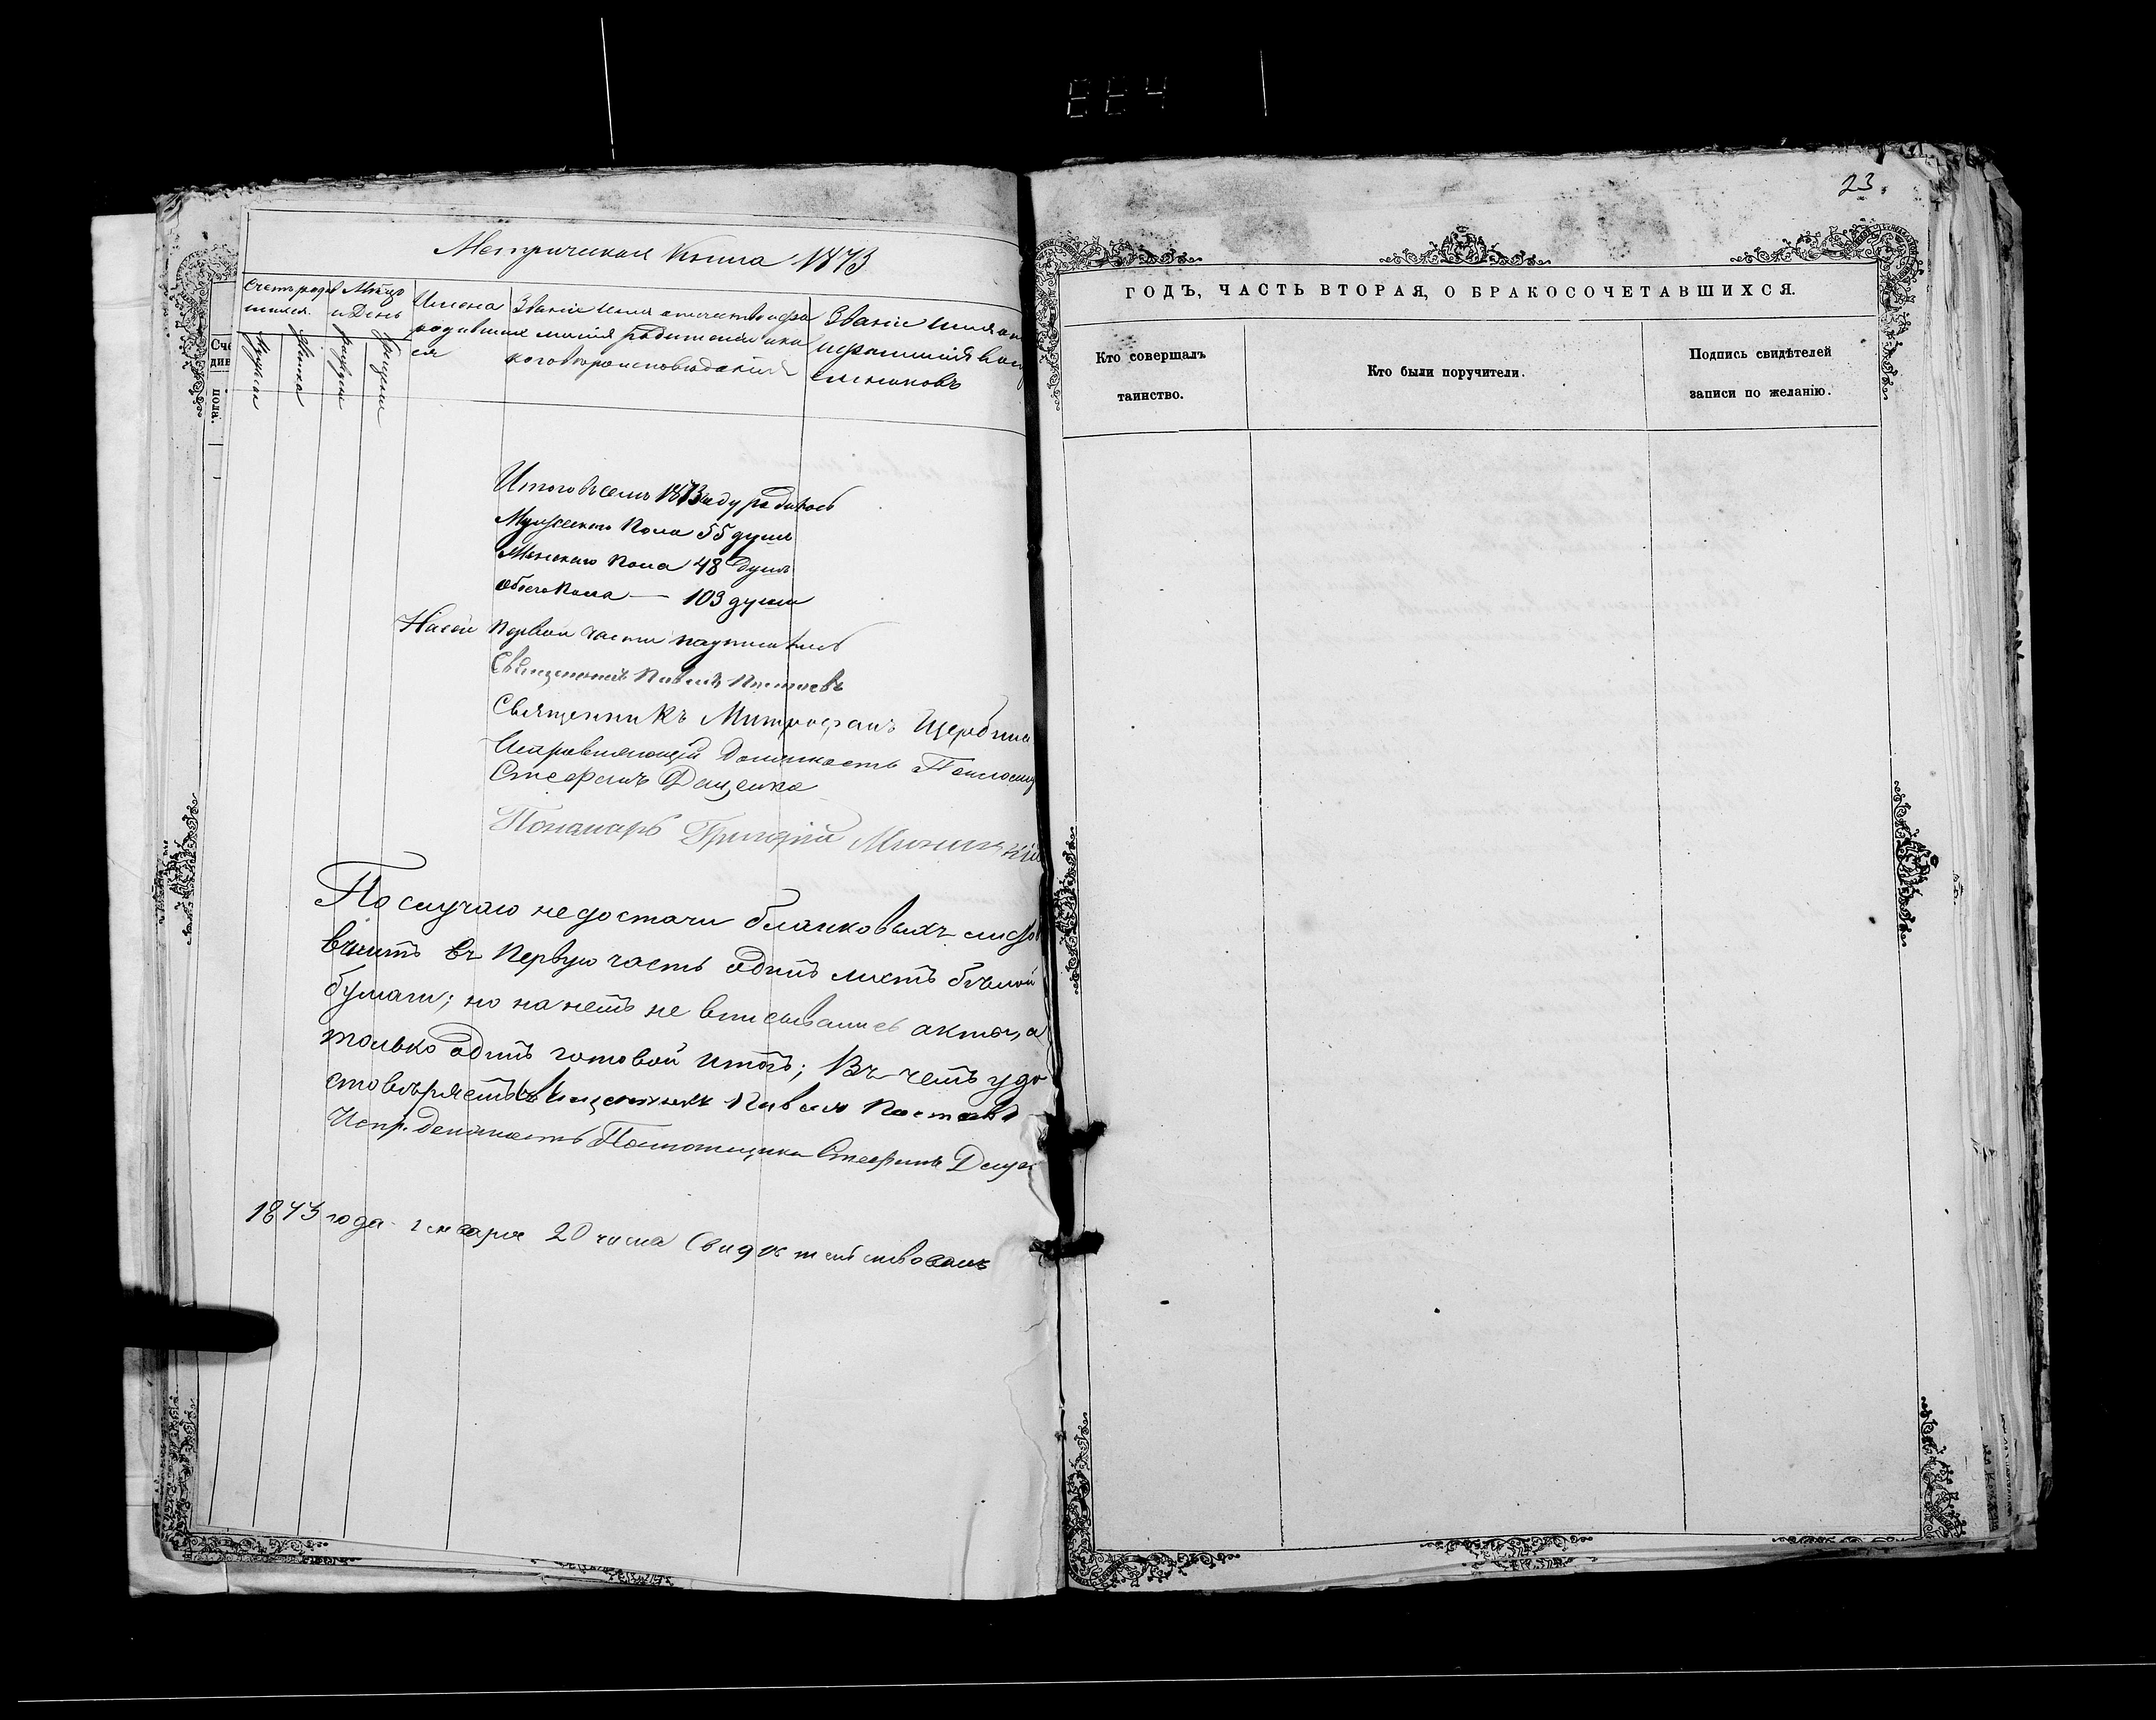 Метрическая Книга 1873
Счетъ родив Мѣсяц
шихся. и День
Имена
родивших
ся
Званіе имя отчество и фа
милія родителей и ка
кого вѣроисповѣданія
Званіе имя от
и фамилія восп
емниковъ
Мужеск
Женска
рожден
крещен
Счe
див
пога.
Итого въ семъ 1873 году родилось
Мужескаго Пола 55 душъ
Женскаго Пола 48 Душъ
обоего Пола — 103 души
На сей Первой части подписались
Священникъ Павелъ
Священникъ Митрофанъ Щербина
Исправляющій Должность Псаломщ
Стефанъ Даценко
Понамарь Григорій
По случаю недостачи бланковыхъ листов
вшитъ въ Первую часть одинъ листъ бѣлой
бумаги; но на немъ не вписывались акты, а
только одинъ готовой итогъ; Въ чемъ удо
стовѣряетъ Священникъ Павелъ
Испр. Должность Псаломщика Стефанъ Даце
1873 года генваря 20 числа Свидѣтельствовалъ
23.
ГОДЪ, ЧАСТЬ ВТОРАЯ, О БРАКОСОЧЕТАВШИХСЯ.
Кто совершалъ
таинство.
Кто были поручители.
Подпись свидѣтелей
записи по желанію.